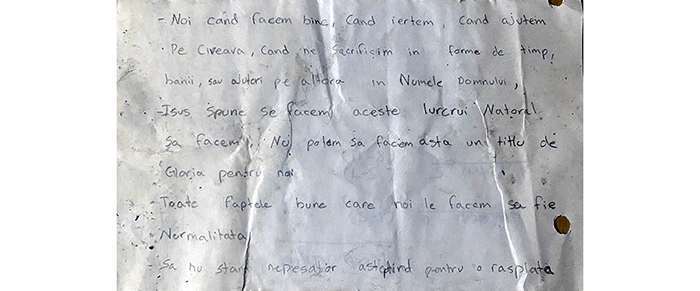 - Noi cand facem bine, Cand iertem, Cand ajutem
· Pe Civeava, Cand ne Sacrificim in forme de timp,
banii, sau ajutori pe altora in Numele Domnului,
- Isus Spune se facem aceste lurcrui Natoral
Sa facem. Nu potem sa facem asta un titlu de
Gloria pentru noi
- Toate faptele bune care noi le facem sa fie
Normalitata
- Sa nu stam nepesator astoptind pentru o rasplata